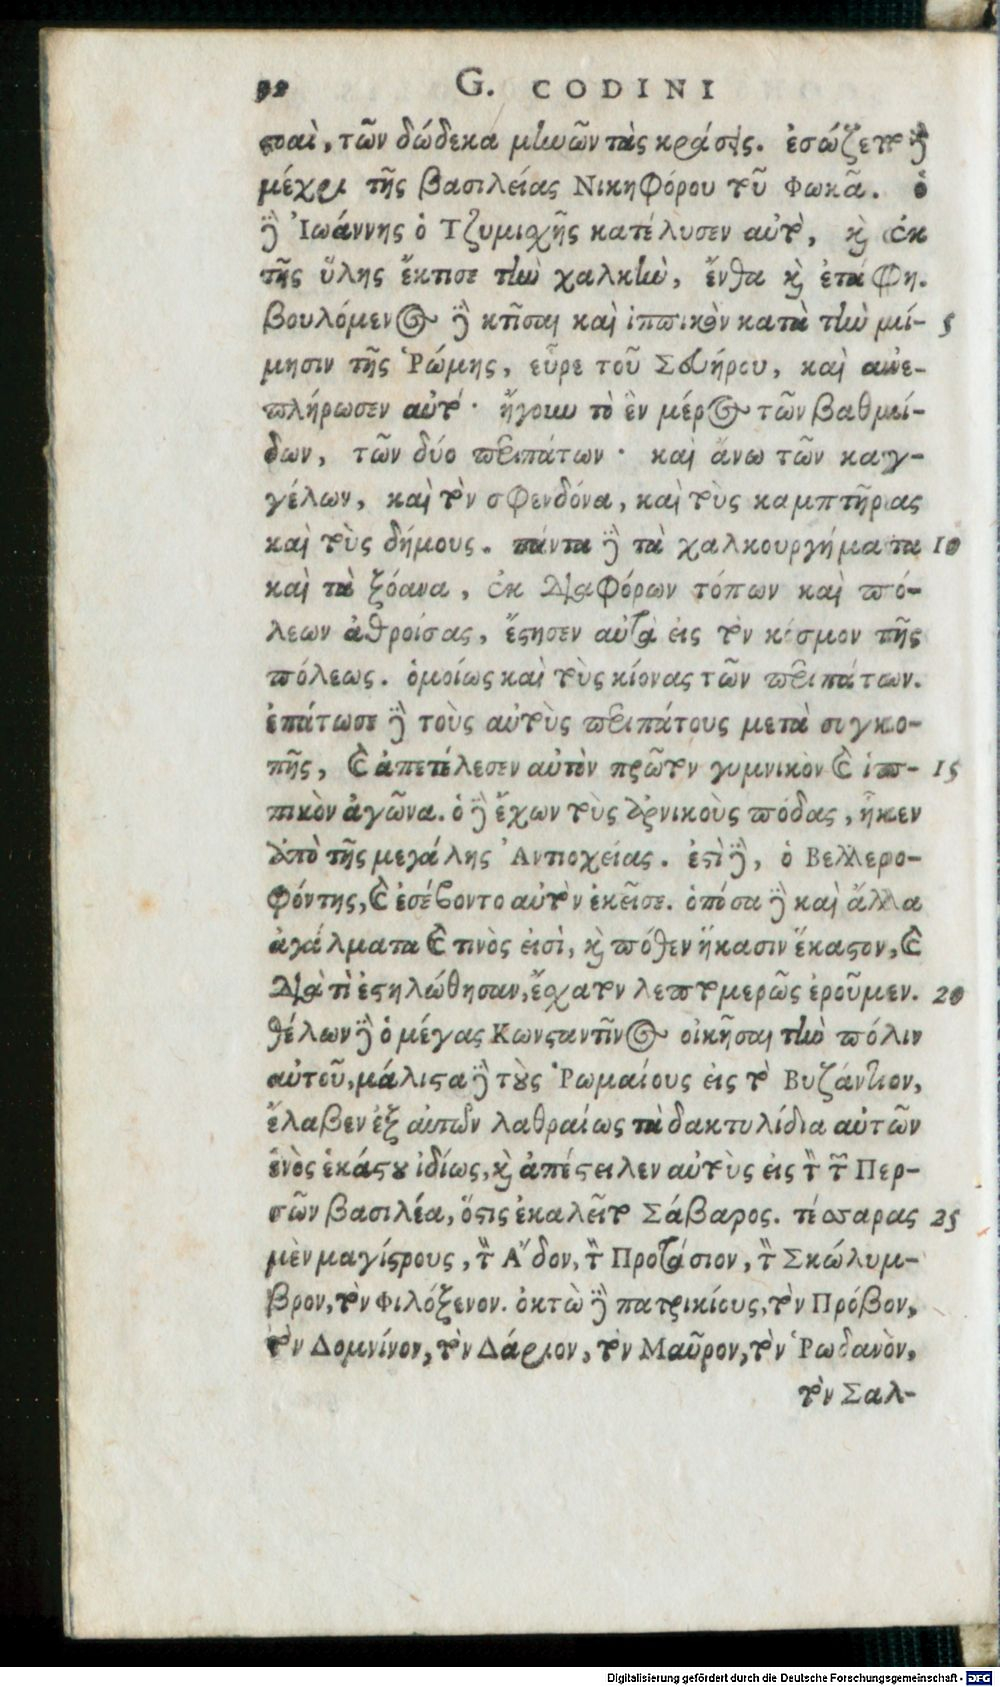 92 G. CODINI
σοαὶ, τῶν δώδεκα μηνῶν τὰς κράσεις. ἐσώζετο δὲ
μέχρι τῆς βασιλείας Νικηφόρου τοῦ Φωκᾶ. ὁ
δὲ Ἰωάννης ὁ Τζυμισχῆς κατέλυσεν αὐτὸ, καὶ ἐκ
τῆς ὕλης ἔκτισε τὴν χαλκὴν, ἔνθα καὶ ἐτάφη.
βουλόμενος δὲ κτῖσαι καὶ ἱππικὸν κατὰ τὴν μί- 5
μησιν τῆς Ῥώμης, εὗρε τοῦ Σευήρου, καὶ ἀνε-
πλήρωσεν αὐτό· ἤγουν τὸ ἓν μέρος τῶν βαθμί-
δων, τῶν δύο περιπάτων· καὶ ἄνω τῶν καγ-
γέλων, καὶ τὸν σφενδόνα, καὶ τοὺς καμπτῆρας
καὶ τοὺς δήμους. πάντα δὲ τὰ χαλκουργήματα 10
καὶ τὰ ξόανα, ἐκ διαφόρων τόπων καὶ πό-
λεων ἀθροίσας, ἔστησεν αὐτὰ εἰς τὸν κόσμον τῆς
πόλεως. ὁμοίως καὶ τοὺς κίονας τῶν περιπάτων.
ἐπάτωσε δὲ τοὺς αὐτοὺς περιπάτους μετὰ συγκο-
πῆς, καὶ ἀπετέλεσεν αὐτὸν πρῶτον γυμνικὸν καὶ ἱπ- 15
πικὸν ἀγῶνα. ὁ δὲ ἔχων τοὺς ὀρνικοὺς πόδας, ἧκεν
ἀπὸ τῆς μεγάλης Ἀντιοχείας. ἐστὶ δὲ, ὁ Βελλερο-
φόντης, καὶ ἐσέβοντο αὐτὸν ἐκεῖσε. ὁπόσα δὲ καὶ ἄλλα
ἀγάλματα καὶ τινὸς εἰσὶ, καὶ πόθεν ἥκασιν ἕκαστον, καὶ
διὰ τὶ ἐστηλώθησαν, ἔσχατον λεπτομερῶς ἐροῦμεν. 20
θέλων δὲ ὁ μέγας Κωνσταντῖνος οἰκῆσαι τὴν πόλιν
αὐτοῦ, μάλιστα δὲ τοὺς Ῥωμαίους εἰς τὸ Βυζάντιον,
ἔλαβεν ἐξ αὐτῶν λαθραίως τὰ δακτυλίδια αὐτῶν
ἑνὸς ἑκάστου ἰδίως, καὶ ἀπέστειλεν αὐτοὺς εἰς τὸν τῶν Περ-
σῶν βασιλέα, ὅστις ἐκαλεῖτο Σάβαρος. τέσσαρας 25
μὲν μαγίστρους, τὸν Ἄδον, τὸν Προτάσιον, τὸν Σκώλυμ-
βρον, τὸν Φιλόξενον. ὀκτὼ δὲ πατρικίους, τὸν Πρόβον,
τὸν Δομνίνον, τὸν Δάρειον, τὸν Μαῦρον, τὸν Ῥωδανὸν,
τὸν Σαλ-
Digitalisierung gefördert durch die Deutsche Forschungsgemeinschaft - DFG